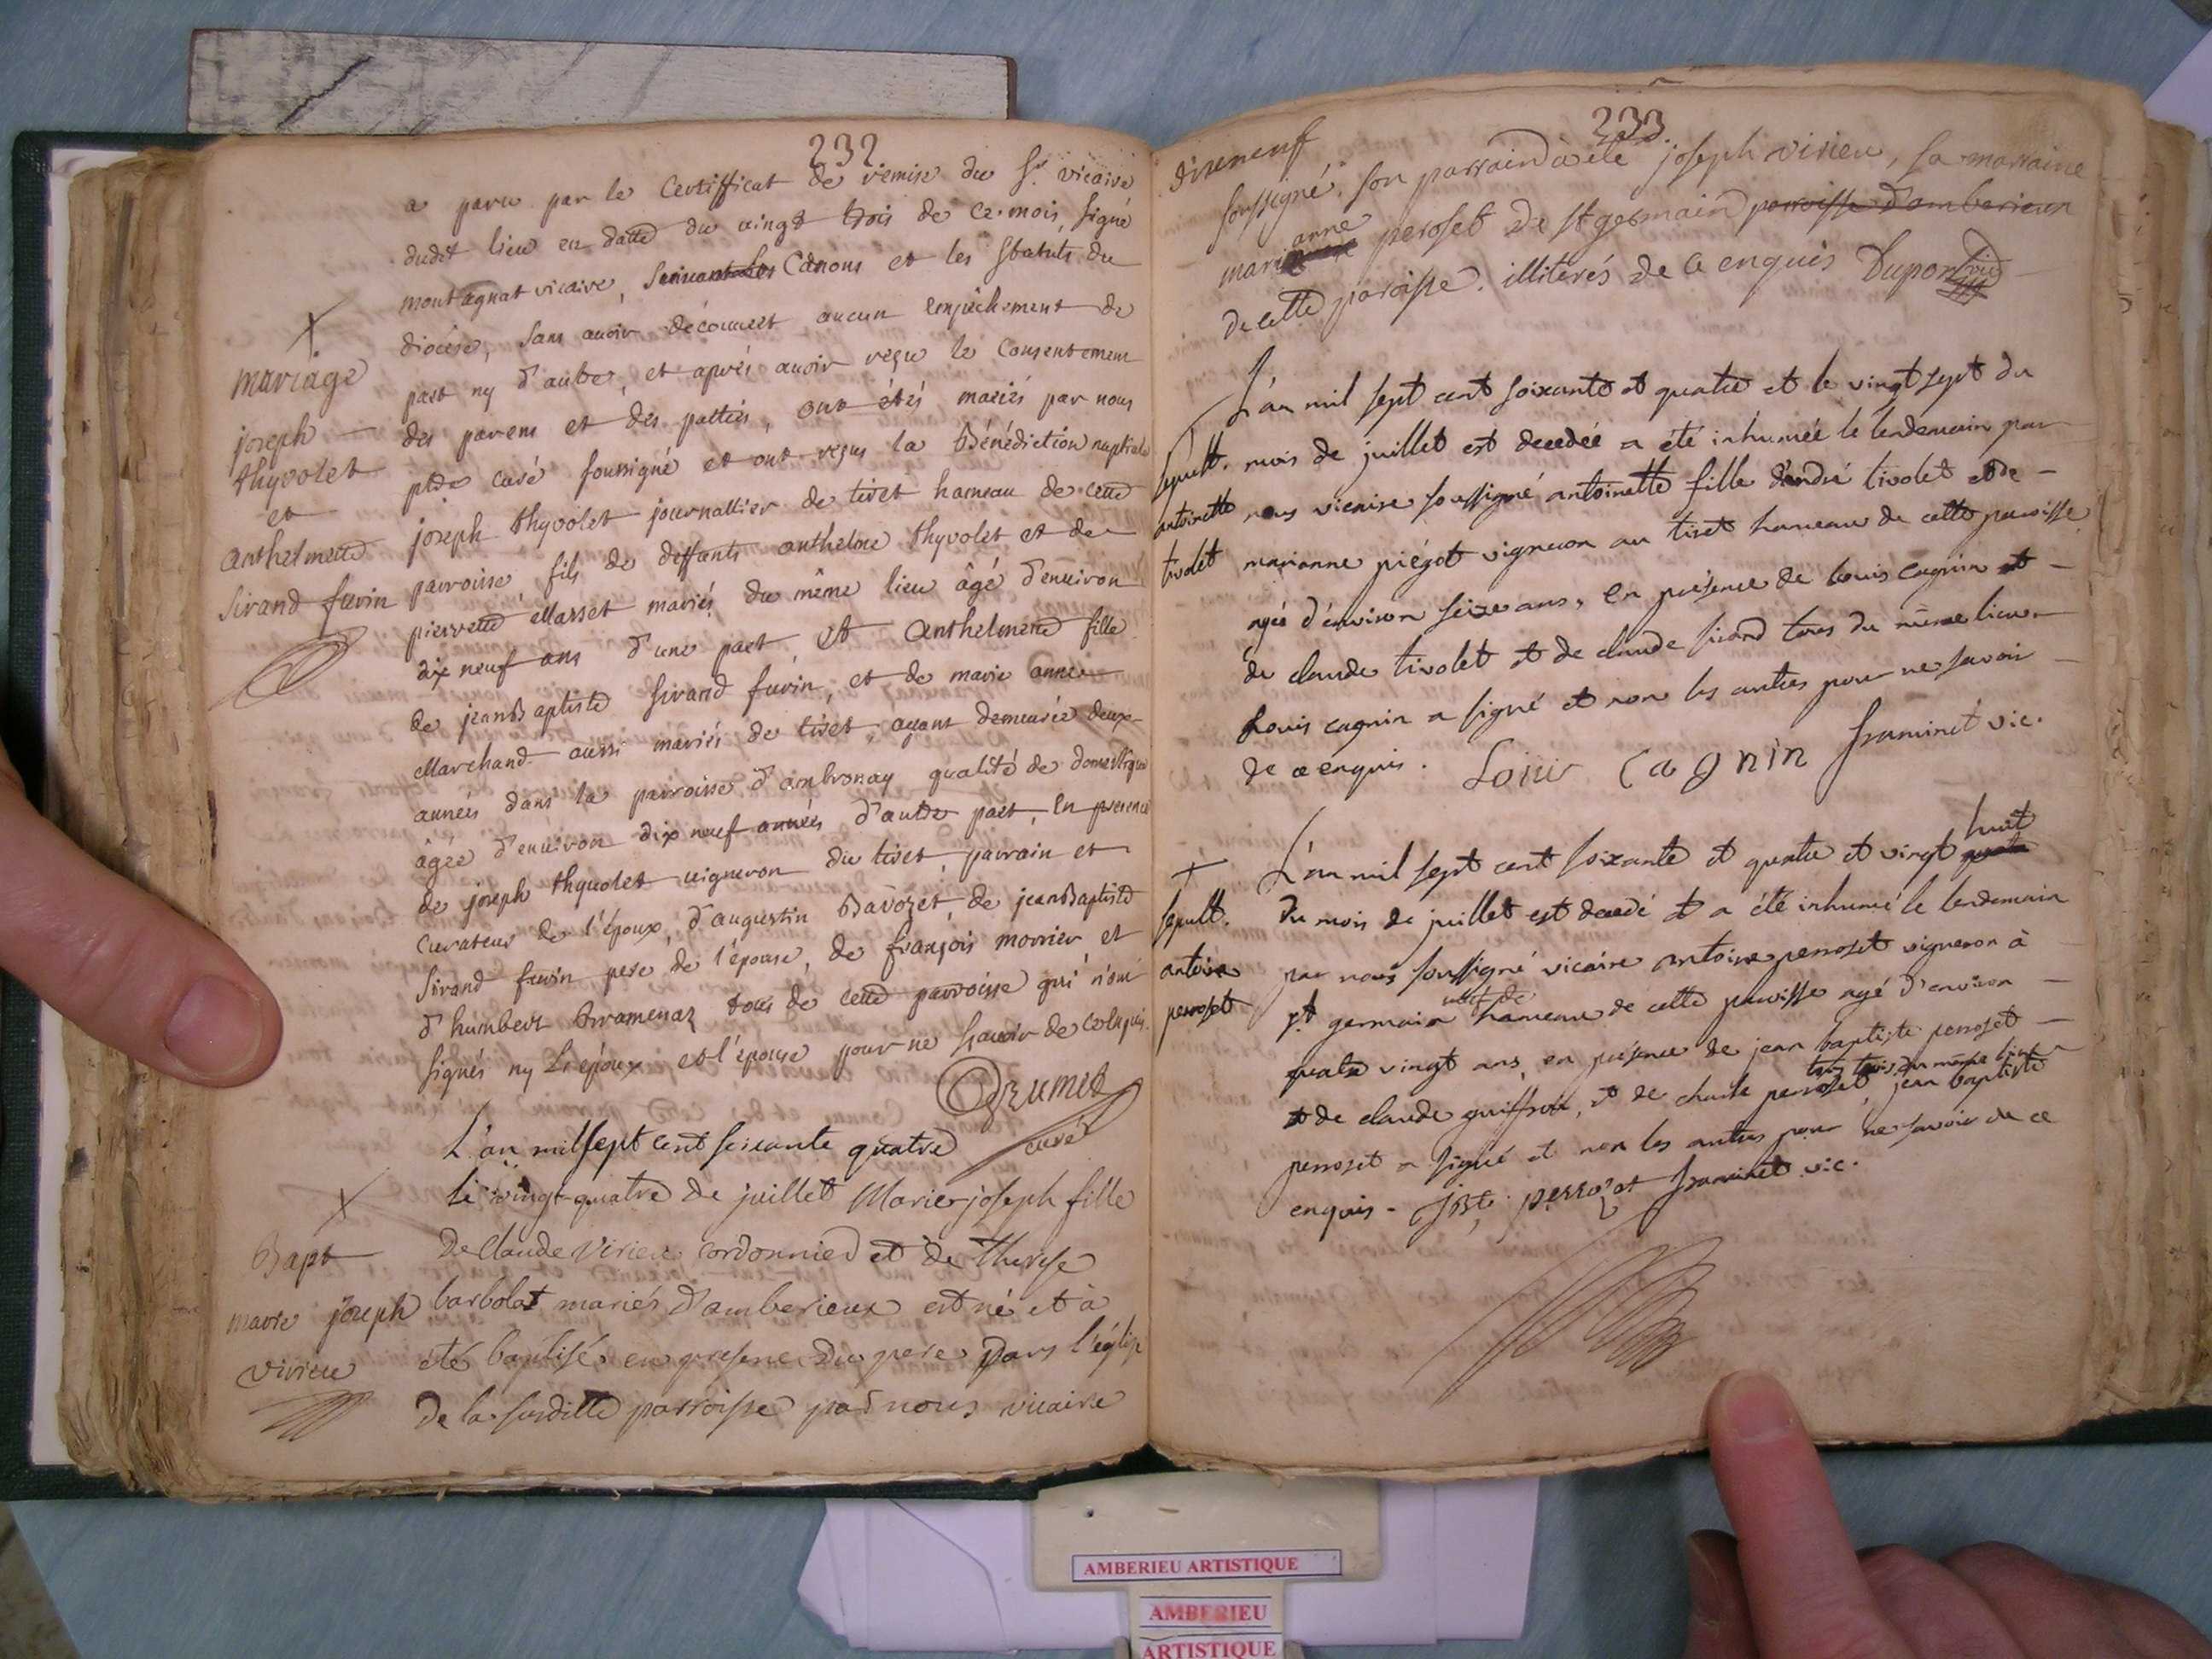 232
a paru par le Certifficat de remise du Sr. vicaire
dudit lieu en datte du vingt trois de ce mois, signé
montagnat vicaire, Canons et les Statuts du
diocése, sans avoir découvert aucun empêchement de
part ny d'autre, et aprés avoir reçu le Consentement
des parens et des parties, ont étés mariés par nous
ptre curé soussigné et ont reçus la Bénédiction nuptiale
joseph thyvolet journallier de tiret hameau de cette
parroisse fils de deffunts anthelme thyvolet et de
pierrette Masset mariés du même lieu âgé d'environ
dix neuf ans d'une part et Anthelmette fille
de jeanBaptiste Sirand fuvin, et de marie anne
Marchand aussi mariés de tiret, ayant demeurée deux
années dans la parroisse d'ambronay qualité de domestique
âgée d'environ dix neuf années d'autre part, En presence
de joseph thyvolet vigneron du tiret, parrain et
Curateur de l'époux, d'augustin Bavozet, de jeanBaptiste
Sirand fuvin pere de l'épouse, de françois morrier et
d'humbert Bramenaz tous de cette parroisse qui n'ont
signés ny L'époux et l'épouse pour ne savoir de ce enquis.
Grumet
curé
mariage
joseph
thyvolet
et
Anthelmette
Sirand fuvin
L'an mil sept cent soixante quatre
le vingt-quatre de juillet Marie joseph fille
De claude Virieu cordonnier et de therese
barbolat mariés d'amberieux est né et à
été baptisée en presence du pere Dans l'église
de la susditte parroisse par nous vicaire
Bapt
marie joseph
virieu
233
dixeneuf
soussigné. son parrain à été joseph virieu, sa marraine
marianne peroset de st germain parroisse d'amberieux
de cette paroisse. illiterés de ce enquis Dupont vic
L'an mil sept cent soixante et quatre et le vingt sept du
mois de juillet est decedée a été inhumée le lendemain par
nous vicaire soussigné antoinette fille d'andré tivolet et de
marianne piégot vigneron au tiret hameau de cette paroisse
agée d'environ seize ans, en présence de louis cagnin et
de claude tivolet et de claude sirand tous du même lieu
Louis cagnin a signé et non les autres pour ne savoir
de ce enquis. Louis Cagnin framinet vic.
sepult.
antoinette
tivolet
L'an mil sept cent soixante et quatre et vingt huit
du mois de juillet est decedé et a été inhumé le lendemain
par nous soussigné vicaire antoine perroset vigneron à
st germain hameau de cette paroisse agé d'environ
quatre vingt ans, en présence de jean baptiste perroset
tous trois du même lieu
et de claude, et de charle perroset, jean baptiste
perroset a signé et non les autres pour ne savoir de ce
enquis - JBte perrozet framinet vic.
sepult.
antoine
perroset
AMBERIEU ARTISTIQUE
AMBERIEU
ARTISTIQUE